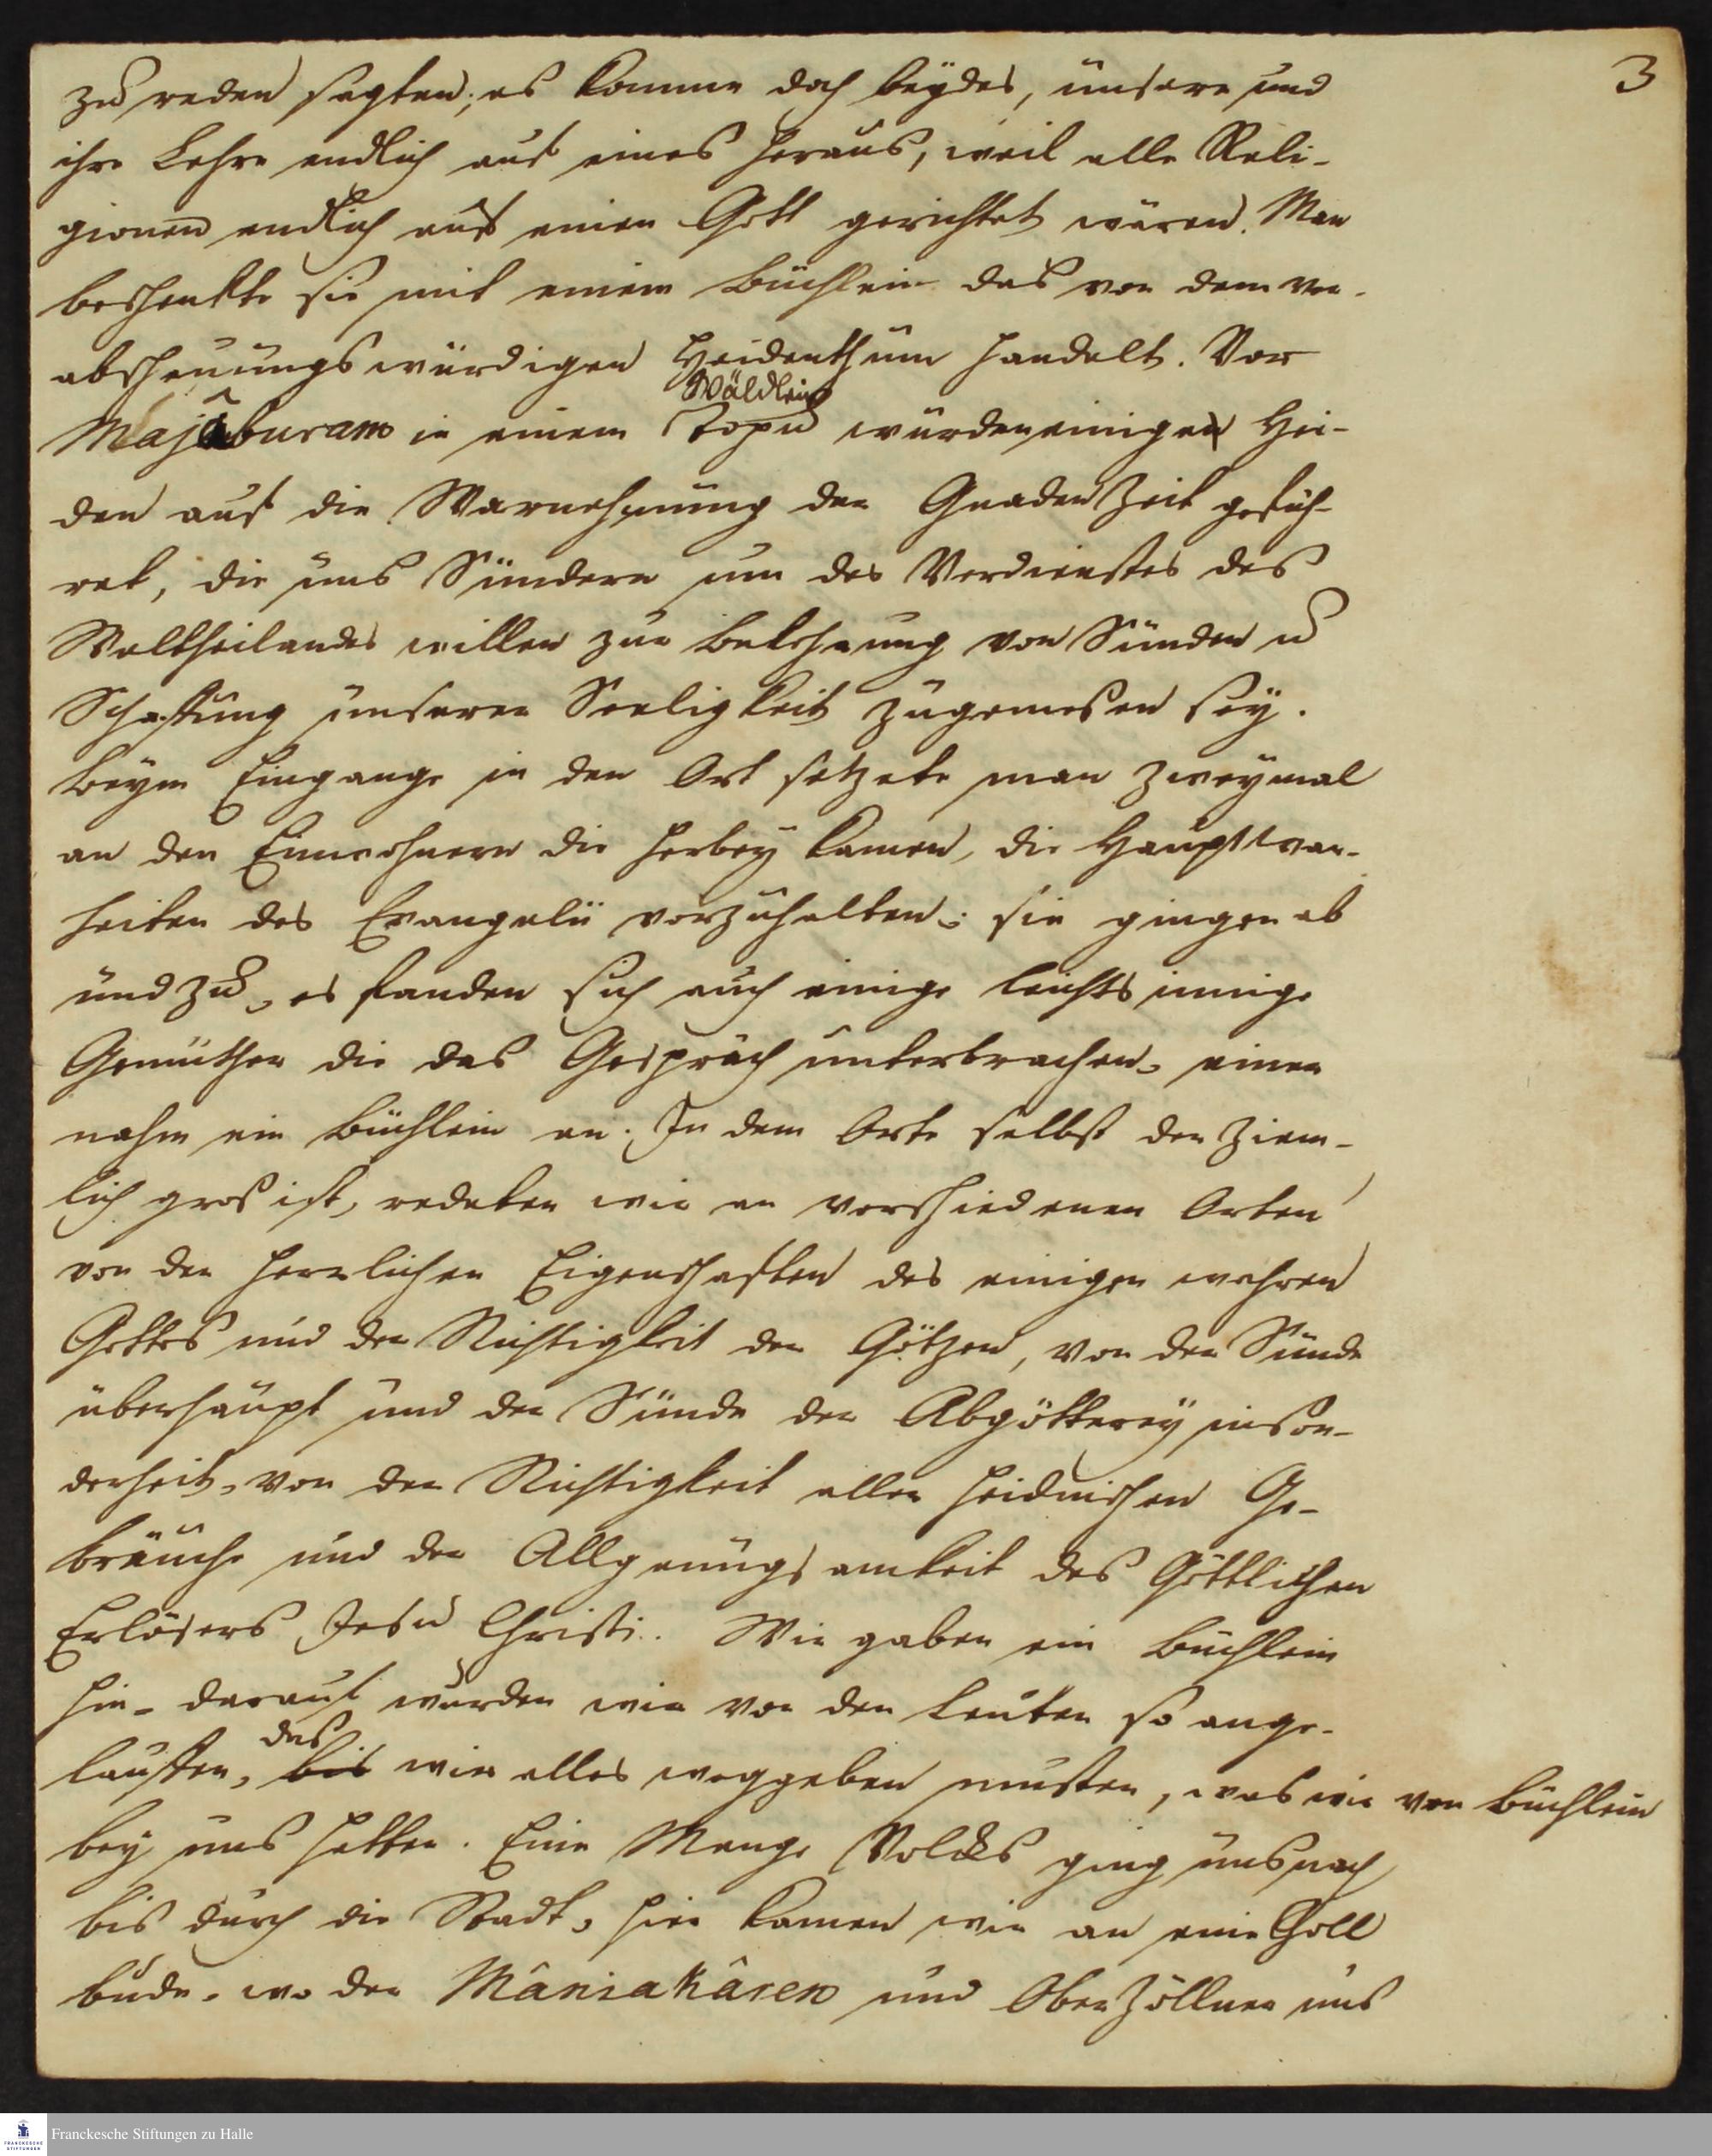 3
zu reden sagten; es komme doch beydes, unsere und
ihre Lehre endlich auf eines heraus, weil alle Reli-
gionen endlich auf einen Gott gerichtet wären. Man
beschenkte sie mit einem Büchlein das von dem ver-
abscheuungswürdigen Heidenthum handelt. Vor
Wäldlein
Majaburam in einem Topu wurden einigen Hei-
den auf die Warnehmung der Gnaden Zeit gefüh-
ret, die uns Sündern um des Verdienstes des
Weltheilandes willen zur Bekehrung von Sünden u
Schaffung unserer Seeligkeit zugemesen sey.
Beym Eingange in den Ort setzete man zweymal
an den Einwohnern die herbey kamen, die Hauptwar-
heiten des Evangelii vorzuhalten; sie gingen ab
und zu, es fanden sich auch einige leichtsinnige
Gemüther die das Gespräch unterbrachen, einer
nahm ein Büchlein an. In dem Orte selbst der ziem-
lich gros ist, redeten wir an verschiedenen Orten
von den herrlichen Eigenschaften des einigen wahren
Gottes und der Nichtigkeit der Götzen, von der Sünde
überhaupt und der Sünde der Abgötterey inson-
derheit, von der Nichtigkeit aller heidnischen Ge-
bräuche und der Allgenungsamkeit des Göttlichen
Erlösers Jesu Christi. Wir gaben ein Büchlein
hin, darauf wurden wir von den Leuten so ange-
das
lauffen, bis wir alles weggeben musten, was wir von Büchlein
bey uns hatten. Eine Menge Volcks ging uns nach
bis durch die Stadt, hier kamen wir an eine Zoll
bude, wo der Mâniakâren und Ober Zöllner uns
Franckesche Stiftungen zu Halle